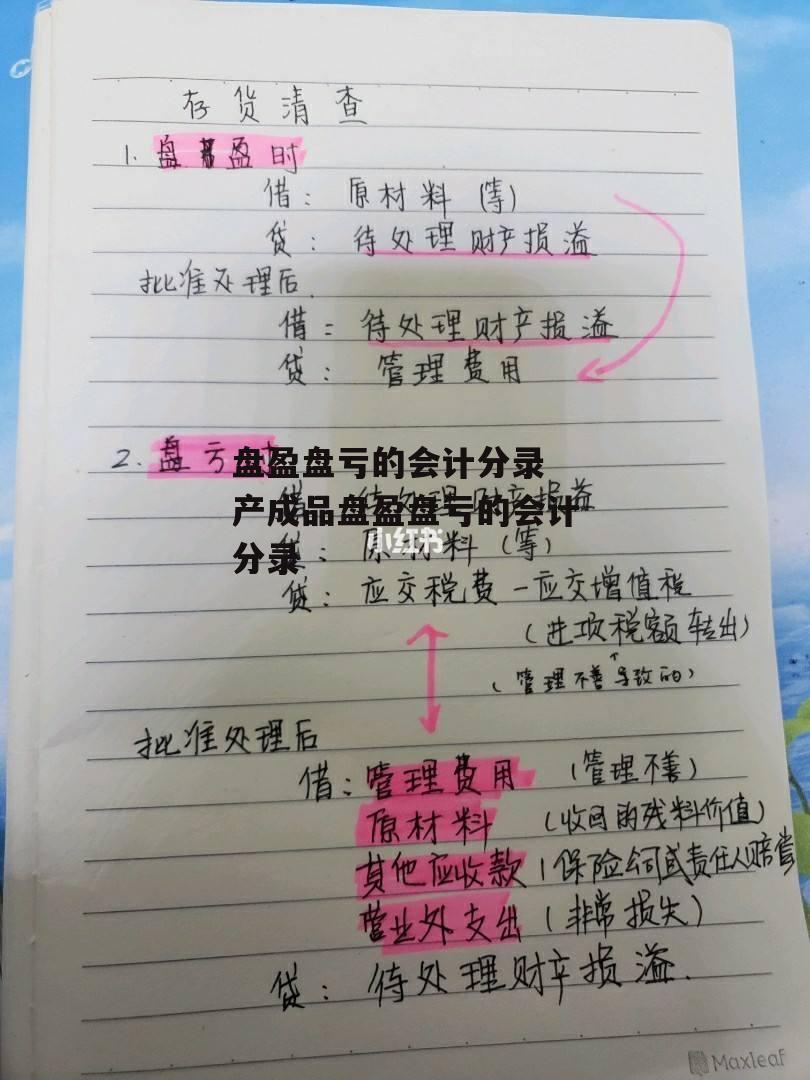 存货清查
1. 盘盈时
借：原材料（等）
贷：待处理财产损溢
批准处理后.
借：待处理财产损溢
贷：管理费用
2. 盘亏
盘盈盘亏的会计分录
借：待处理财产损益
产成品盘盈盘亏的会计
分录
小红书
贷：原材料（等）
贷：应交税费－应交增值税
（进项税额转出）
（管理不善导致的）
批准处理后
借：管理费用（管理不善）
原材料（收回的残料价值）
其他应收款（保险公司或责任人赔偿
营业外支出（非常损失）
贷：待处理财产损溢.
Maxleaf